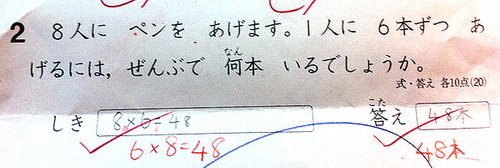 2 8人に ペンを あげます。1人に 6本ずつ あ
なん
げるには，ぜんぶで 何本 いるでしょうか。
式・答え 各10点(20)
しき 8×6=48
こた
答え 48本
6×8=48
48本